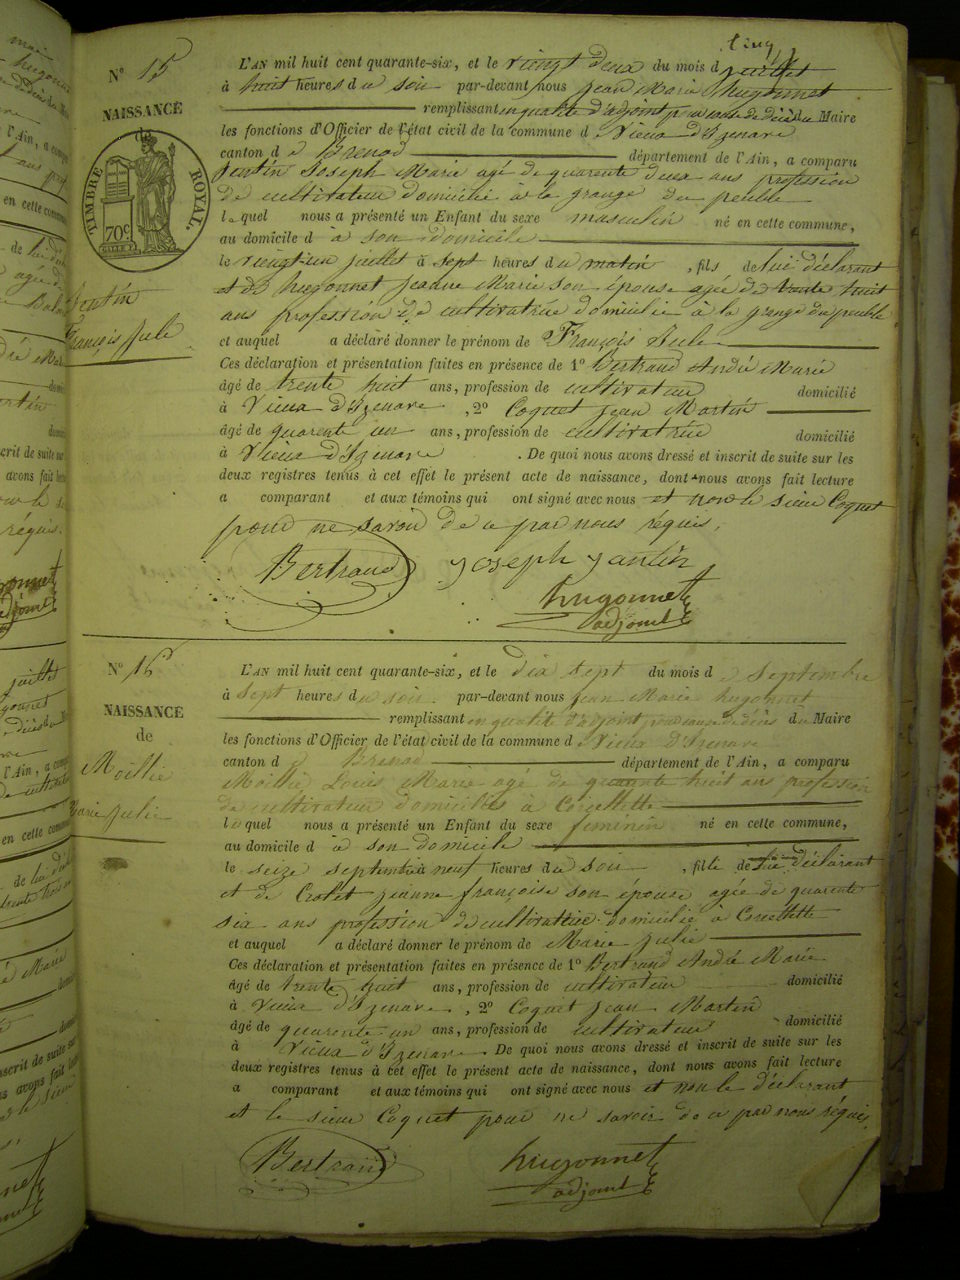 N° 15
NAISSANCE
TIMBRE ROYAL.
70c
Jantin
François Julé
L'AN mil huit cent quarante-six, et le vingt deux du mois d juillet
à huit heures du soir par-devant nous Jean Marie hugonnet
remplissant en qualité d'adjoint pour cause de décès du Maire
les fonctions d'Officier de l'état civil de la commune d Vieux d'Izenave
canton d e Brenod département de l'Ain, a comparu
Jantin Joseph Marie agé de quarente deux ans profession
de cultivateur domicilié à la grange du peuble
lequel nous a présenté un Enfant du sexe masculin né en cette commune,
au domicile d à son domicile
le vingt-un juillet à sept heures du matin , fils de lui déclarant
et de hugonnet Jeanne Marie son épouse agée de trente huit
ans profession de cultivatrice domicilié à la grange du peuble
et auquel a déclaré donner le prénom de François Jule
Ces déclaration et présentation faites en présence de 1° Bertrand André Marie
âgé de trente huit ans, profession de cultivateur domicilié
à Vieux d'Izenave , 2° Coquet Jean Martin
âgé de quarente un ans, profession de cultivatrue domicilié
à Vieux d'Izenave . De quoi nous avons dressé et inscrit de suite sur les
deux registres tenus à cet effet le présent acte de naissance, dont nous avons fait lecture
a comparant et aux témoins qui ont signé avec nous et non le sieur Coquet
pour ne savoir de a par nous réquis.
Bertrand Joseph Jantin
hugonnet
adjoint
N° 16
NAISSANCE
de
Moillie
Marie Julie
L'AN mil huit cent quarante-six, et le dix sept du mois d e Septembre
à sept heures du soir par-devant nous Jean Marie hugonnet
remplissant en qualité d'adjoint pour cause de décès du Maire
les fonctions d'Officier de l'état civil de la commune d Vieux d'Izenave
canton d e Brenod département de l'Ain, a comparu
Moillie Louis Marie agé de quarente huit ans profession
de cultivateur domicilié à Corcelette
lequel nous a présenté un Enfant du sexe feminin né en cette commune,
au domicile d à son domicile
le seize septembre à neuf heures du soir , fille de lui déclarant
et de Crolet jeanne françoise son epouse agée de quarente
six ans profession de cultivatrice domicilié a Corcelette
et auquel a déclaré donner le prénom de Marie Julie
Ces déclaration et présentation faites en présence de 1° Bertrand André Marie
âgé de trente huit ans, profession de cultivateur domicilié
à Vieux d'Izenave , 2° Coquet Jean Martin
âgé de quarente un ans, profession de cultivateur domicilié
à Vieux d'Izenave . De quoi nous avons dressé et inscrit de suite sur les
deux registres tenus à cet effet le présent acte de naissance, dont nous avons fait lecture
a comparant et aux témoins qui ont signé avec nous et non le déclarant
et le sieur Coquet pour ne savoir de a par nous réquis.
Bertrand hugonnet
adjoint